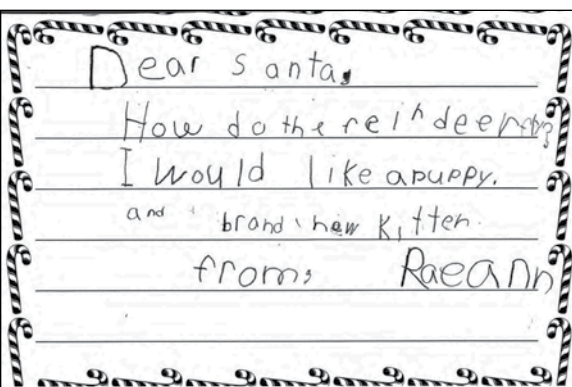 Dear Santa,
How do the reindeer fly?
I would like a puppy.
and brand new kitten.
from, Raeann